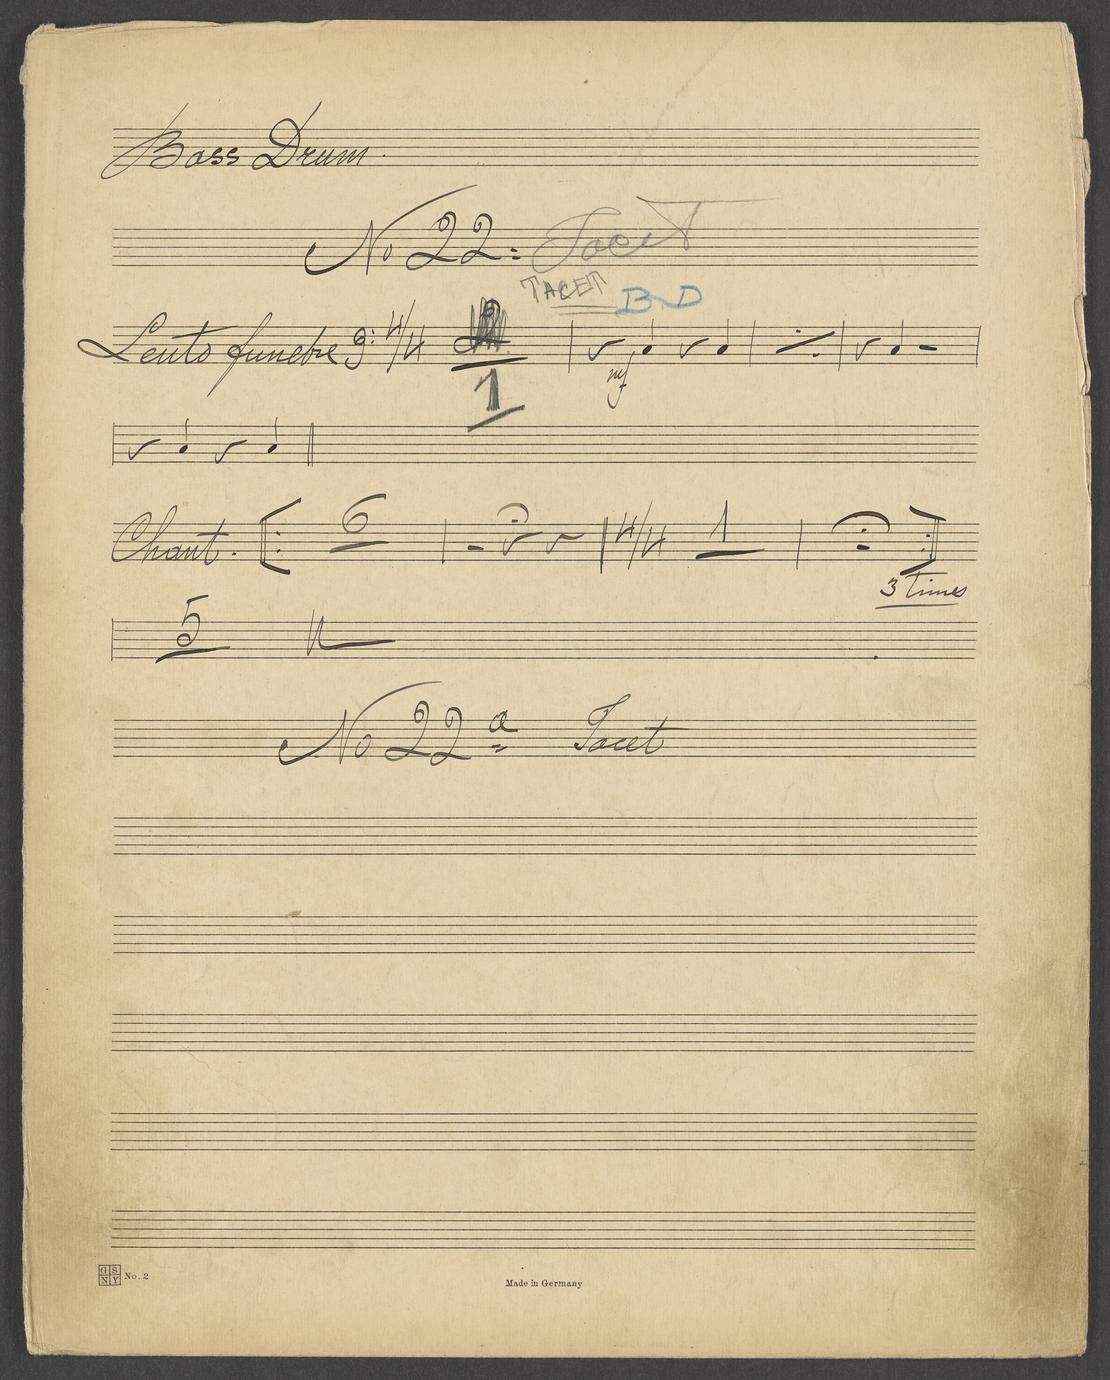 Bass Drum.
No 22= Tacet
TACET B.D
Lento funebre 4/4
1
mf
Chant. 6 4/4 1
3 times
5
No 22a Tacet
GS
NY No. 2
Made in Germany